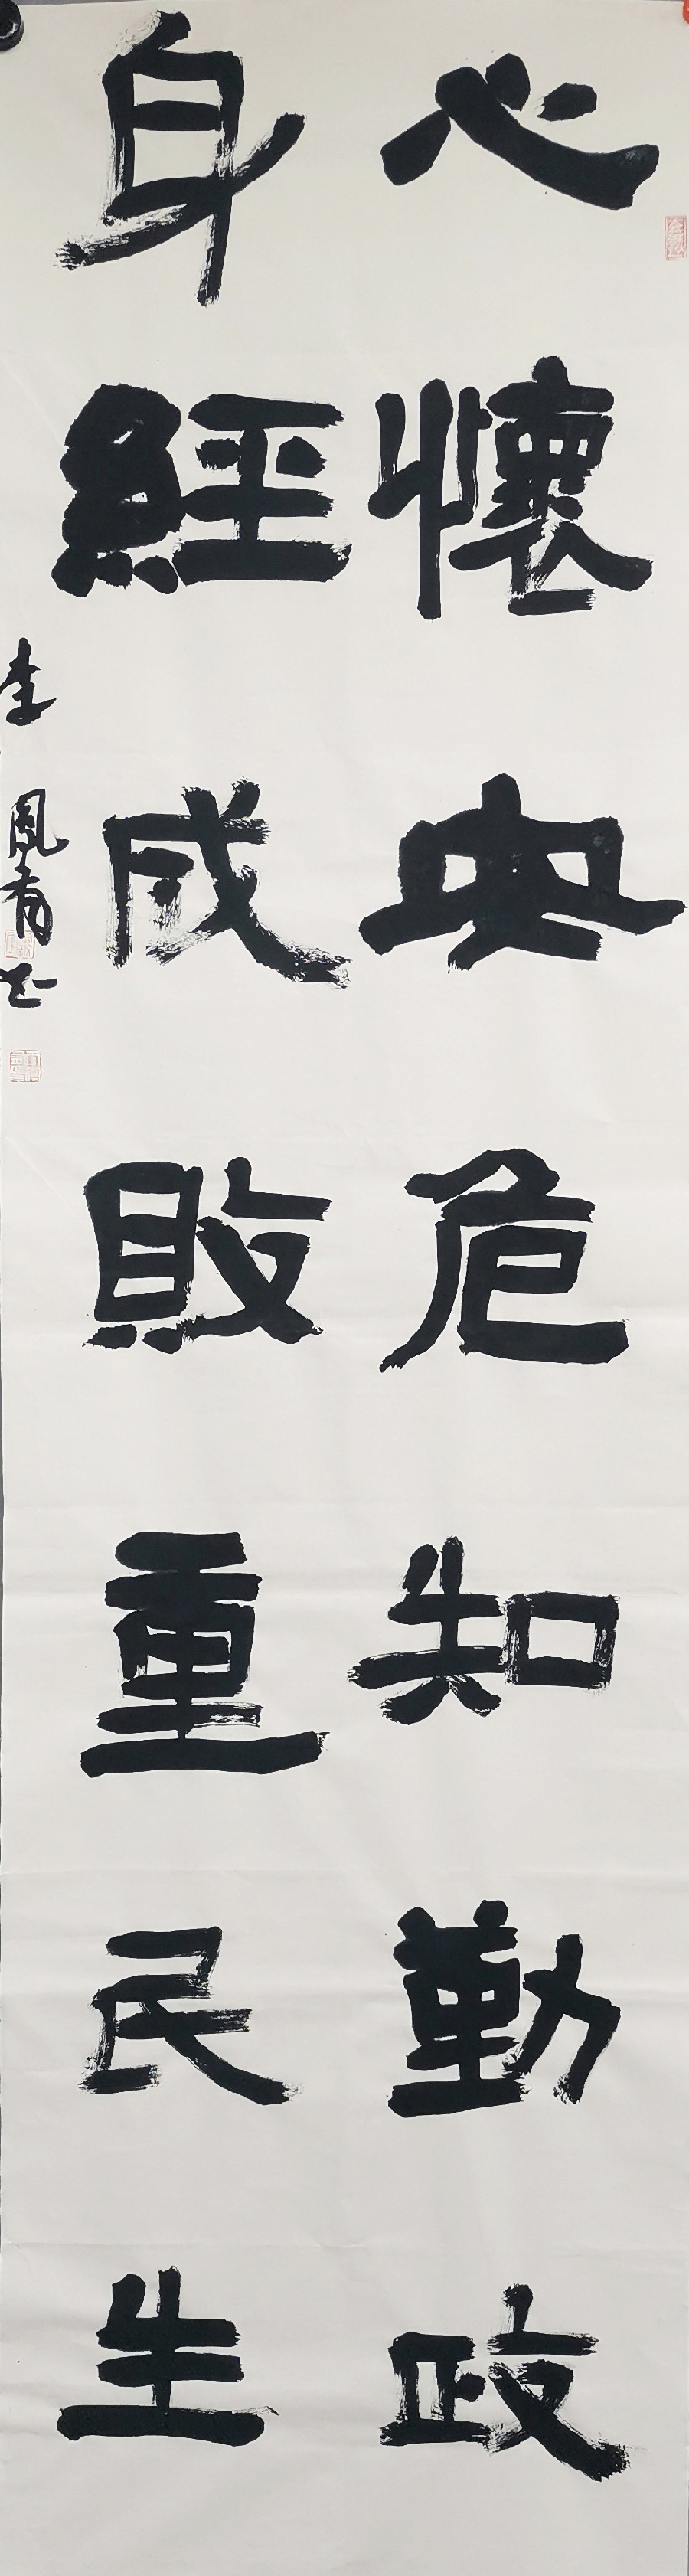 心懷安危知勤政
身經成敗重民生
李鳳有书